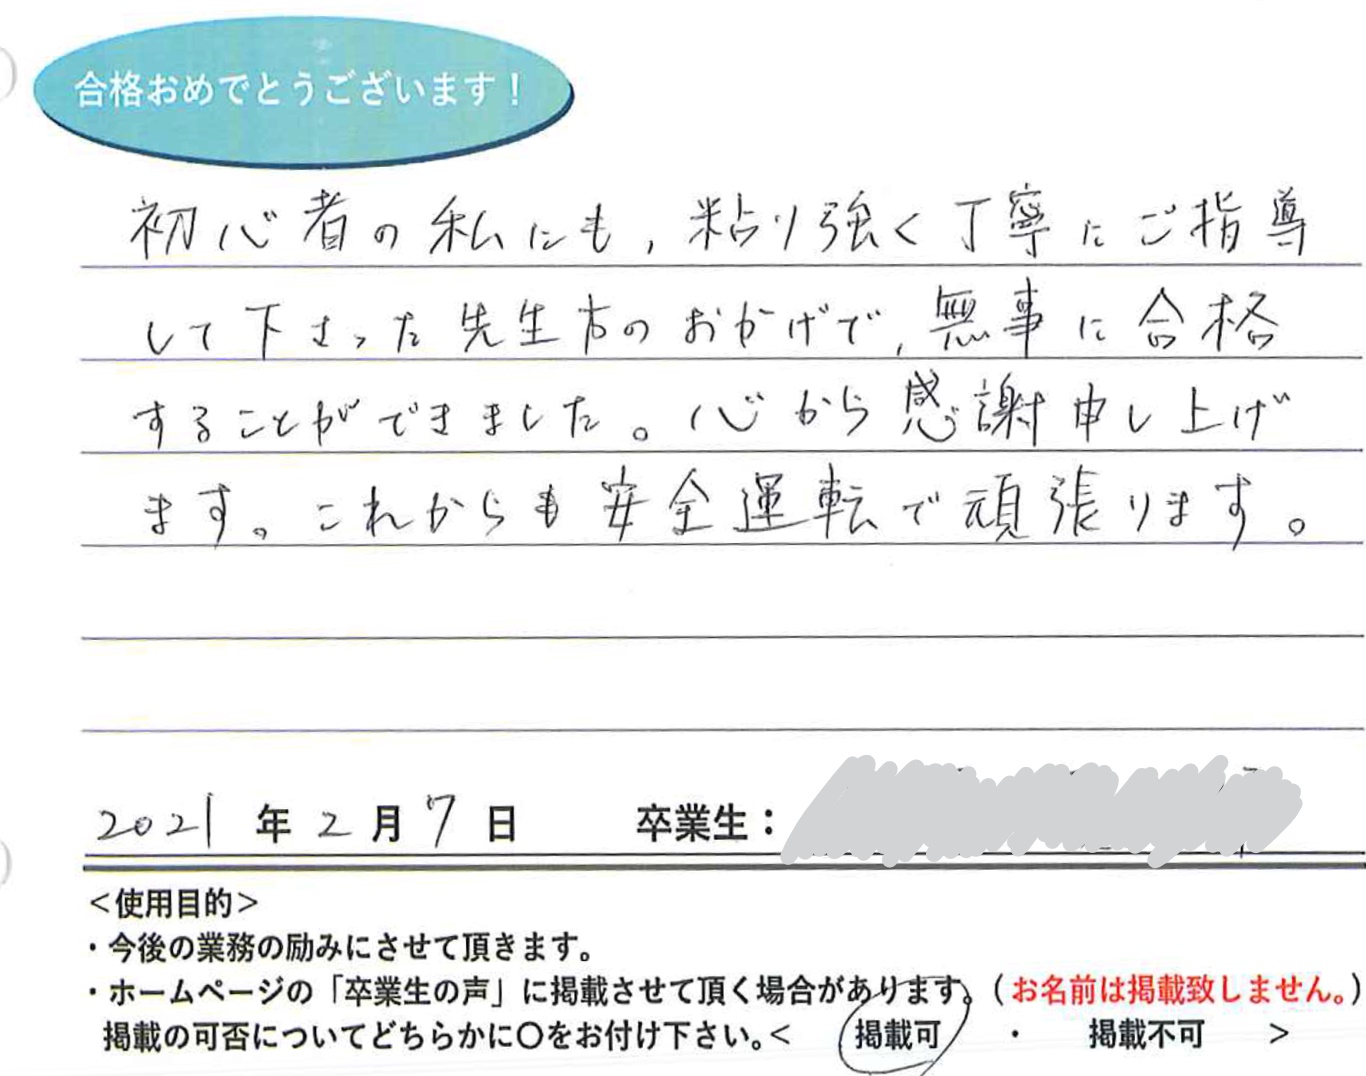 合格おめでとうございます！
初心者の私にも,粘り強く丁寧にご指導
して下さった先生方のおかげで,無事に合格
することができました。心から感謝申し上げ
ます。これからも安全運転で頑張ります。
2021年2月7日 卒業生：
＜使用目的＞
・今後の業務の励みにさせて頂きます。
・ホームページの「卒業生の声」に掲載させて頂く場合があります。（お名前は掲載致しません。）
掲載の可否についてどちらかに〇をお付け下さい。＜ 掲載可 ・ 掲載不可 ＞